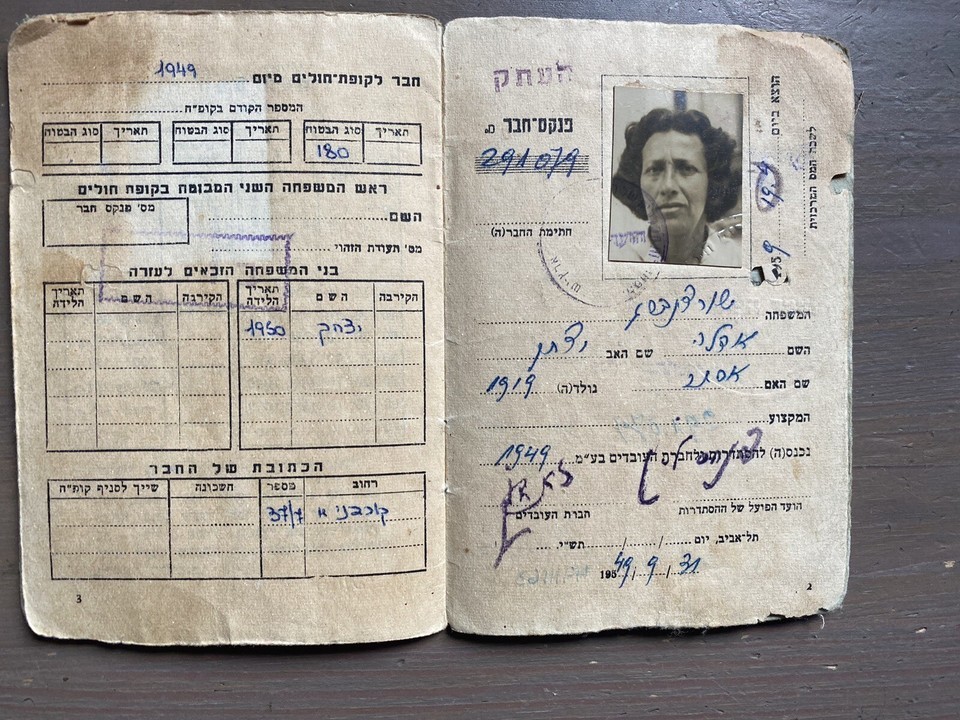 העתק
פנקס־חבר מס
291079
חתימת החבר(ה)
הוצא ביום
לשכת המס המרכזית
המשפחה
השם שם האב
שם האם אסתר נולד(ה) 1919
המקצוע
נכנס(ה) להסתדרות ולחברת העובדים בע״מ 1949
הועד הפועל של ההסתדרות חברת העובדים
תל־אביב, יום ..../..../.... תש״י....
195 49/9/31
2
חבר לקופת־חולים מיום 1949
המספר הקודם בקופ״ח
תאריך סוג הבטוח תאריך סוג הבטוח תאריך סוג הבטוח
180
ראש המשפחה השני המבוטח בקופת חולים
השם מס׳ פנקס חבר
מס׳ תעודת הזהוי
בני המשפחה הזכאים לעזרה
הקירבה השם תאריך הלידה הקירבה השם תאריך הלידה
יצחק 1950
הכתובת של החבר
רחוב מספר השכונה שייך לסניף קופ״ח
37/7
3